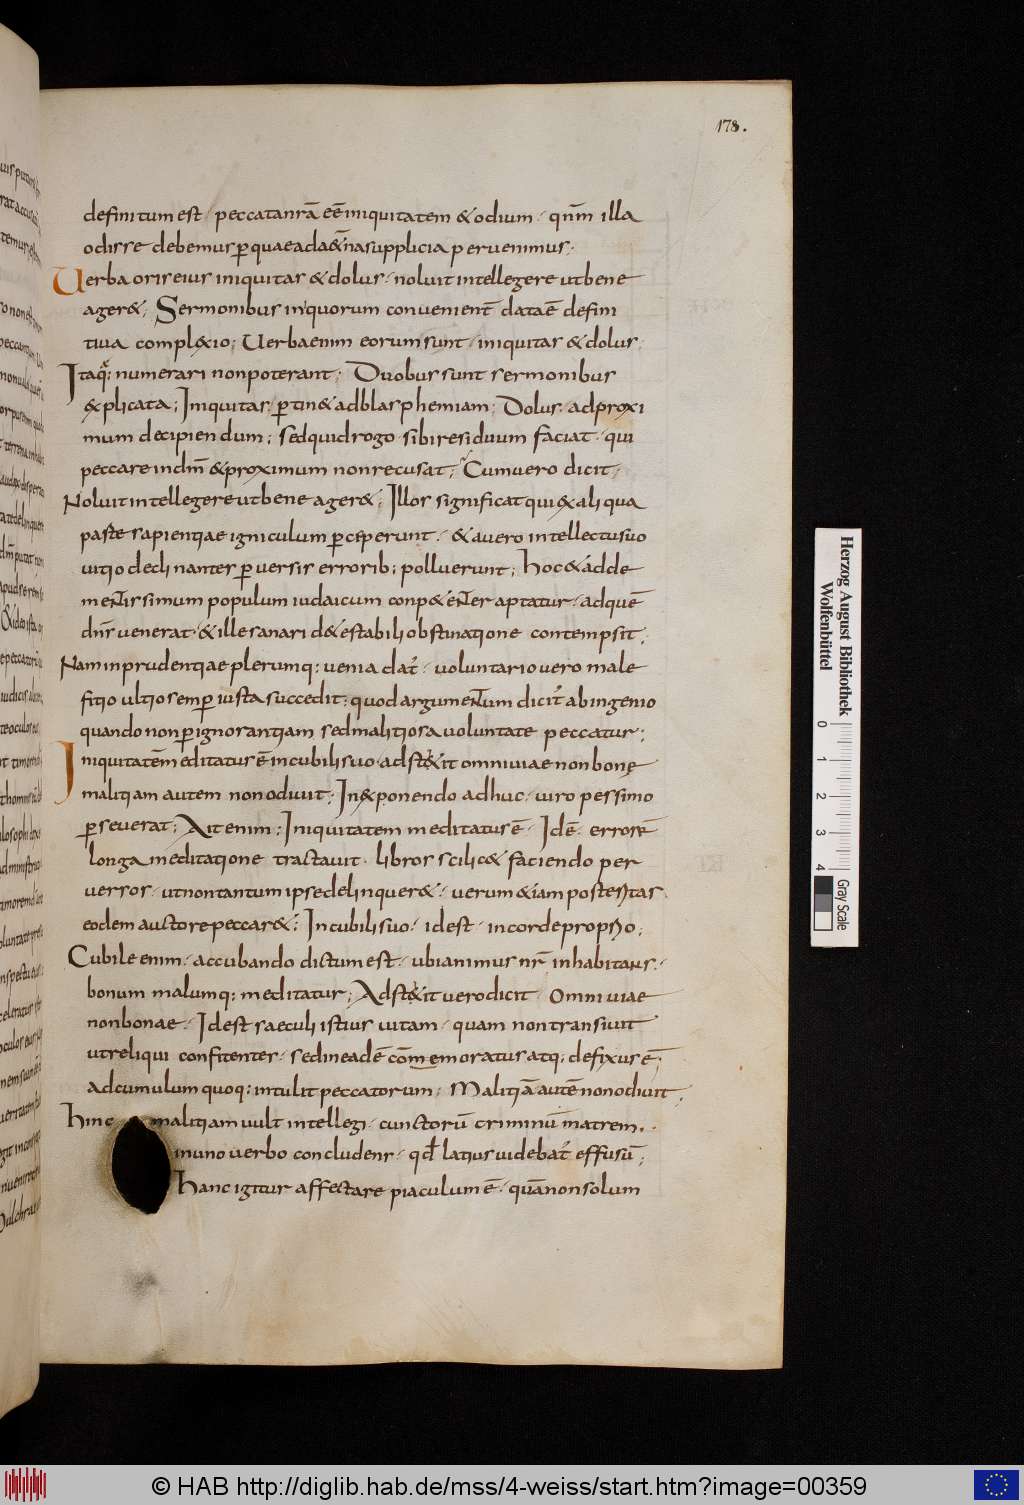 178.
definitum est · peccata nrā eē iniquitatem & odium · qnm̄ illa
odisse debemus per quae ad aet̄na supplicia pervenimus ·
Uerba oris eius iniquitas & dolus · noluit intellegere ut bene
ager& ; Sermonibus in quorum convenient̄ data ē defini
tiua complexio ; Uerba enim eorum sunt · iniquitas & dolus ;
Itaq; numerari non poterant ; Duobus sunt sermonibus
explicata ; Iniquitas pertin& ad blasphemiam ; Dolus · ad proxi
mum decipiendum ; sed quid rogo sibi residuum faciat · qui
peccare in dm̄ & proximum non recusat ; Cum uero dicit ;
Noluit intellegere ut bene ager& ; Illos significat qui ex aliqua
parte sapientiae igniculum perceperunt · & a uero intellectu suo
uitio declinanter perversis errorib; polluerunt ; hoc & ad de
mentissimum populum iudaicum conpetenter aptatur · ad quē
dn̄s venerat · & ille sanari de testabili obstinatione contempsit ;
Nam inprudentiae plerumq; uenia dat̄ · uoluntario uero male
fitio ultio semper iusta succedit ; quod argumentum dicit̄ ab ingenio
quando non per ignorantiam sed malitiosa voluntate peccatur ;
Iniquitatem̄ meditatus ē in cubili suo · adstetit omni uiae non bonę
malitiam autem non odiuit ; In exponendo adhuc · uiro pessimo
perseverat ; Ait enim ; Iniquitatem meditatus ē · Id ē · errorē
longa meditatione tractauit · libros scilic& faciendo per
versos · ut non tantum ipse delinquer& · uerum etiam posteritas
eodem auctore peccar& ; In cubili suo · id est · in corde proprio ;
Cubile enim · accubando dictum est · ubi animus nr̄ inhabitans ·
bonum malumq; meditatur ; Adstetit uero dicit · omni uiae
non bonae · Id est saeculi istius uitam · quam non transiuit
ut reliqui confitentes · sed in eadē commemoratus atq; defixus ē ;
ad cumulum quoq; intulit peccatorum ; Malitiā autē non odiuit ;
hinc malitiam uult intellegi · cunctorū criminū matrem ·
in uno uerbo concludens · qd̄ latius uidebat̄ effusū ;
hanc igitur affectare piaculum ē · quā non solum
Herzog August Bibliothek
Wolfenbüttel
0 1 2 3 4
Gray Scale
© HAB http://diglib.hab.de/mss/4-weiss/start.htm?image=00359